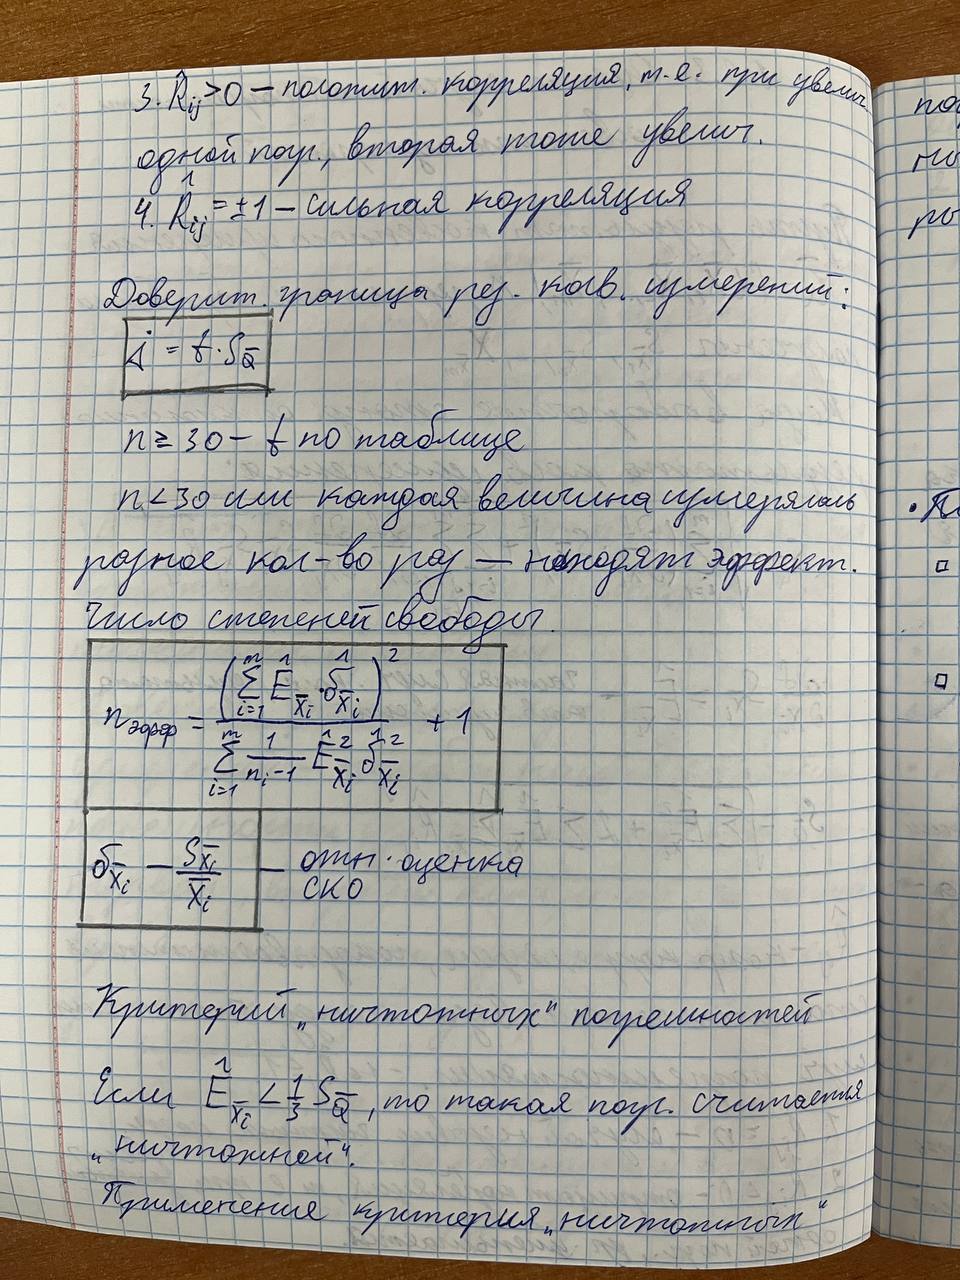 3. R̂ij > 0 – положит. корреляция, т.е. при увелич.
одной погр., вторая тоже увелич.
4. R̂ij = ±1 – сильная корреляция
Доверит. граница рез. косв. измерений:
Δ̇ = t · S_Q̅
n ≥ 30 – t по таблице
n < 30 или каждая величина измерялась
разное кол-во раз — находят эффект.
число степеней свободы.
n эфф = (∑_{i=1}^{m} Ê_{x̅i} · δ̂_{x̅i})² / (∑_{i=1}^{m} 1/(n_i – 1) Ê²_{x̅i} δ̂²_{x̅i}) + 1
δ_{x̅i} – S_{x̅i} / x̅_i – отн. оценка
СКО
Критерий „ничтожных“ погрешностей
Если Ê_{x̅i} < 1/3 S_Q̅, то такая погр. считается
„ничтожной“.
Применение критерия „ничтожных“